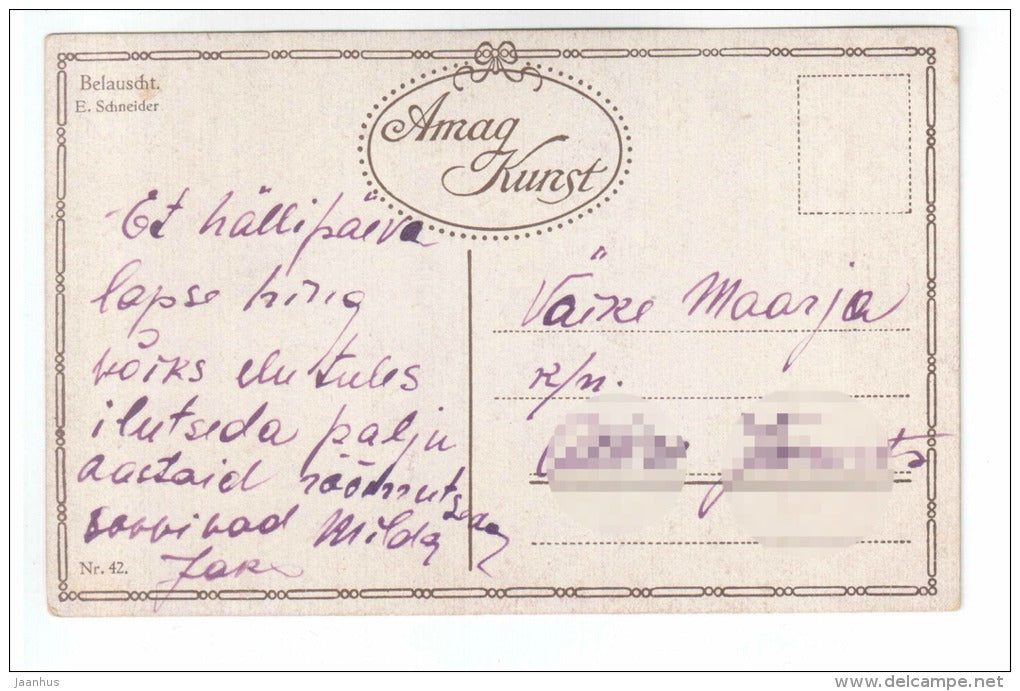 Belauscht.
E. Schneider
Amag
Kunst
Et hällipäeva
lapse hing
võiks elu tules
ilutseda palju
aastaid rõõmutseda
soovivad Milda
Jak
Nr. 42.
Väike Maarja
k/n.
jaanhus
www.delcampe.net